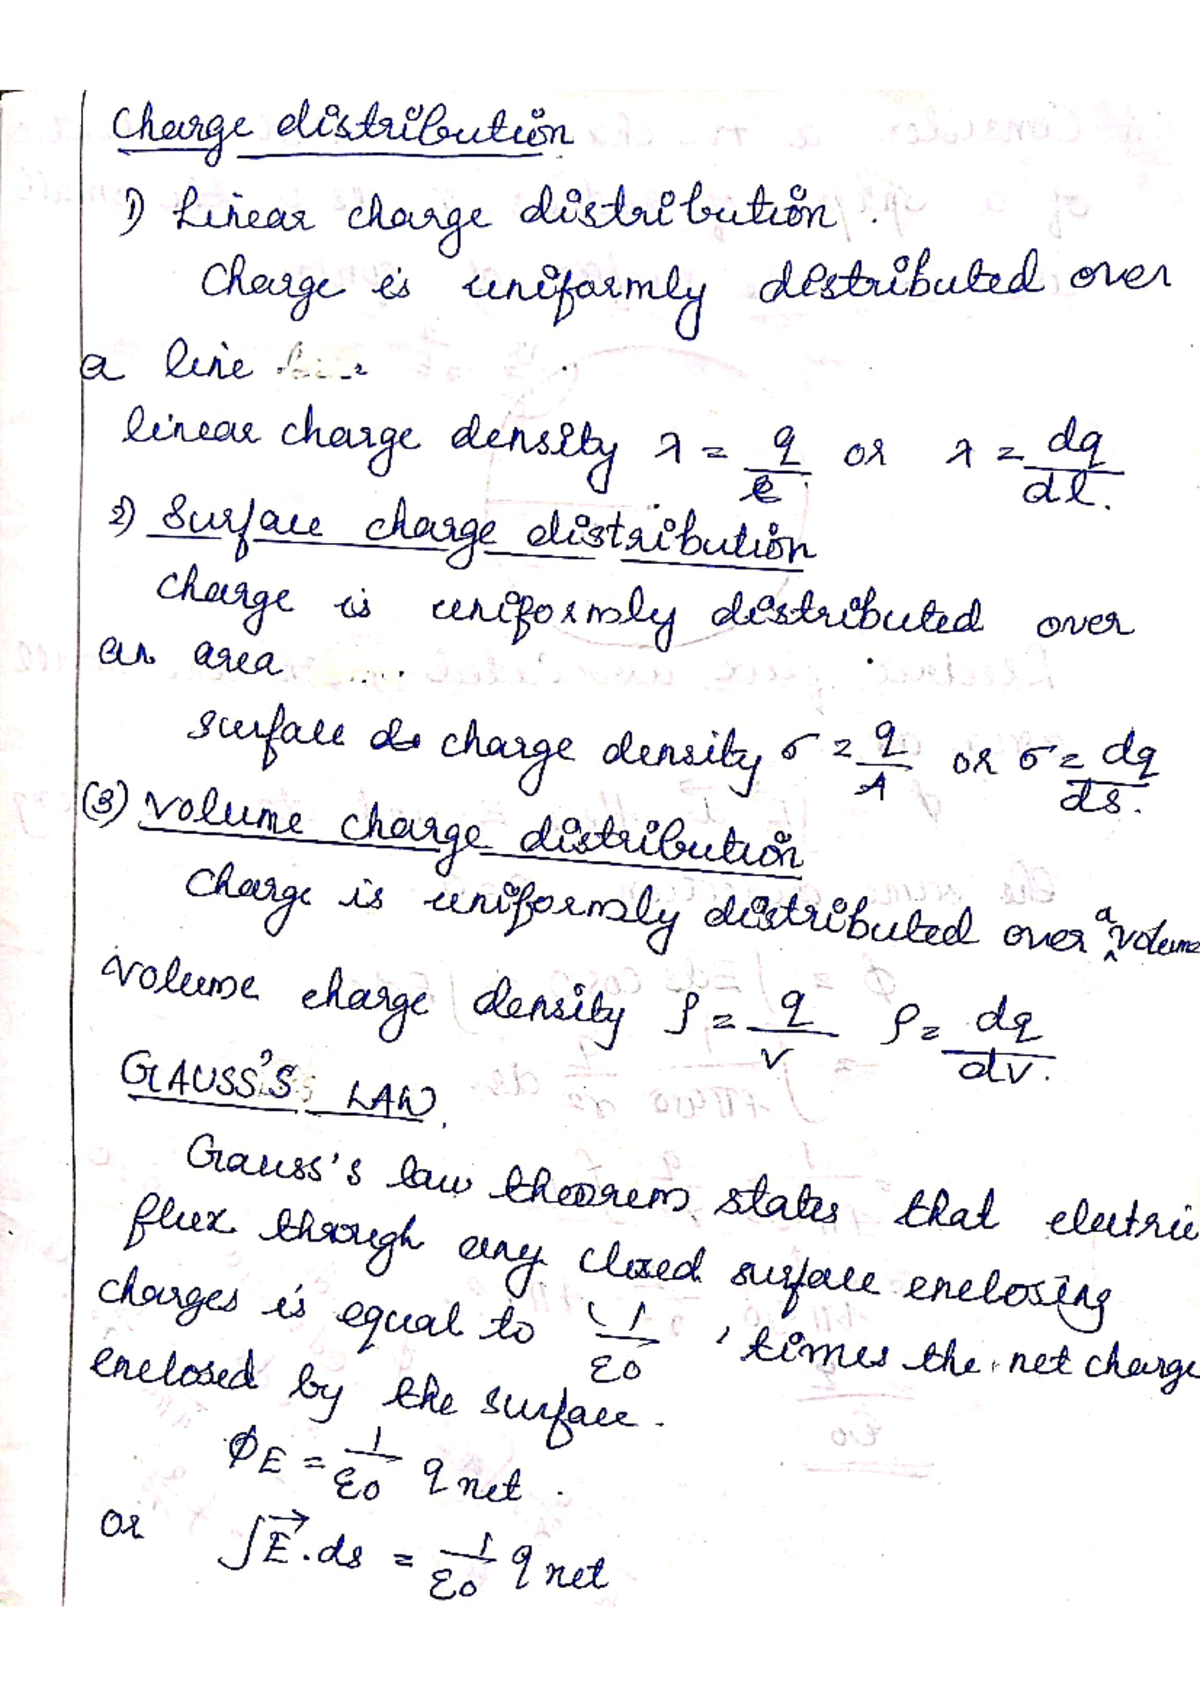 Charge distribution
1) Linear charge distribution.
Charge is uniformly distributed over
a line
linear charge density λ = q/l or λ = dq/dl.
2) Surface charge distribution
charge is uniformly distributed over
an area
surface charge density σ = q/A or σ = dq/ds.
(3) Volume charge distribution
Charge is uniformly distributed over a volume
Volume charge density ρ = q/v ρ = dq/dv.
GAUSS'S LAW.
Gauss's law theorem states that electric
flux through any closed surface enclosing
charges is equal to '1/ε0' times the net charge
enclosed by the surface.
ΦE = 1/ε0 q net.
or ∫E⃗.ds = 1/ε0 q net